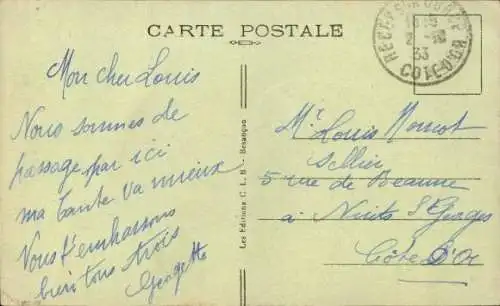 CARTE POSTALE
RECEY-SUR-OURCE
2 -10
33
COTE-D'OR
Mon cher Louis
Nous sommes de
passage par ici
ma tante va mieux
Vous t'embrassons
bien tous trois
Georgette
Les Editions C. L. B. - Besançon
Mr Louis
Sellier
5 rue de Beaune
à Nuits St Georges
Côte d'Or